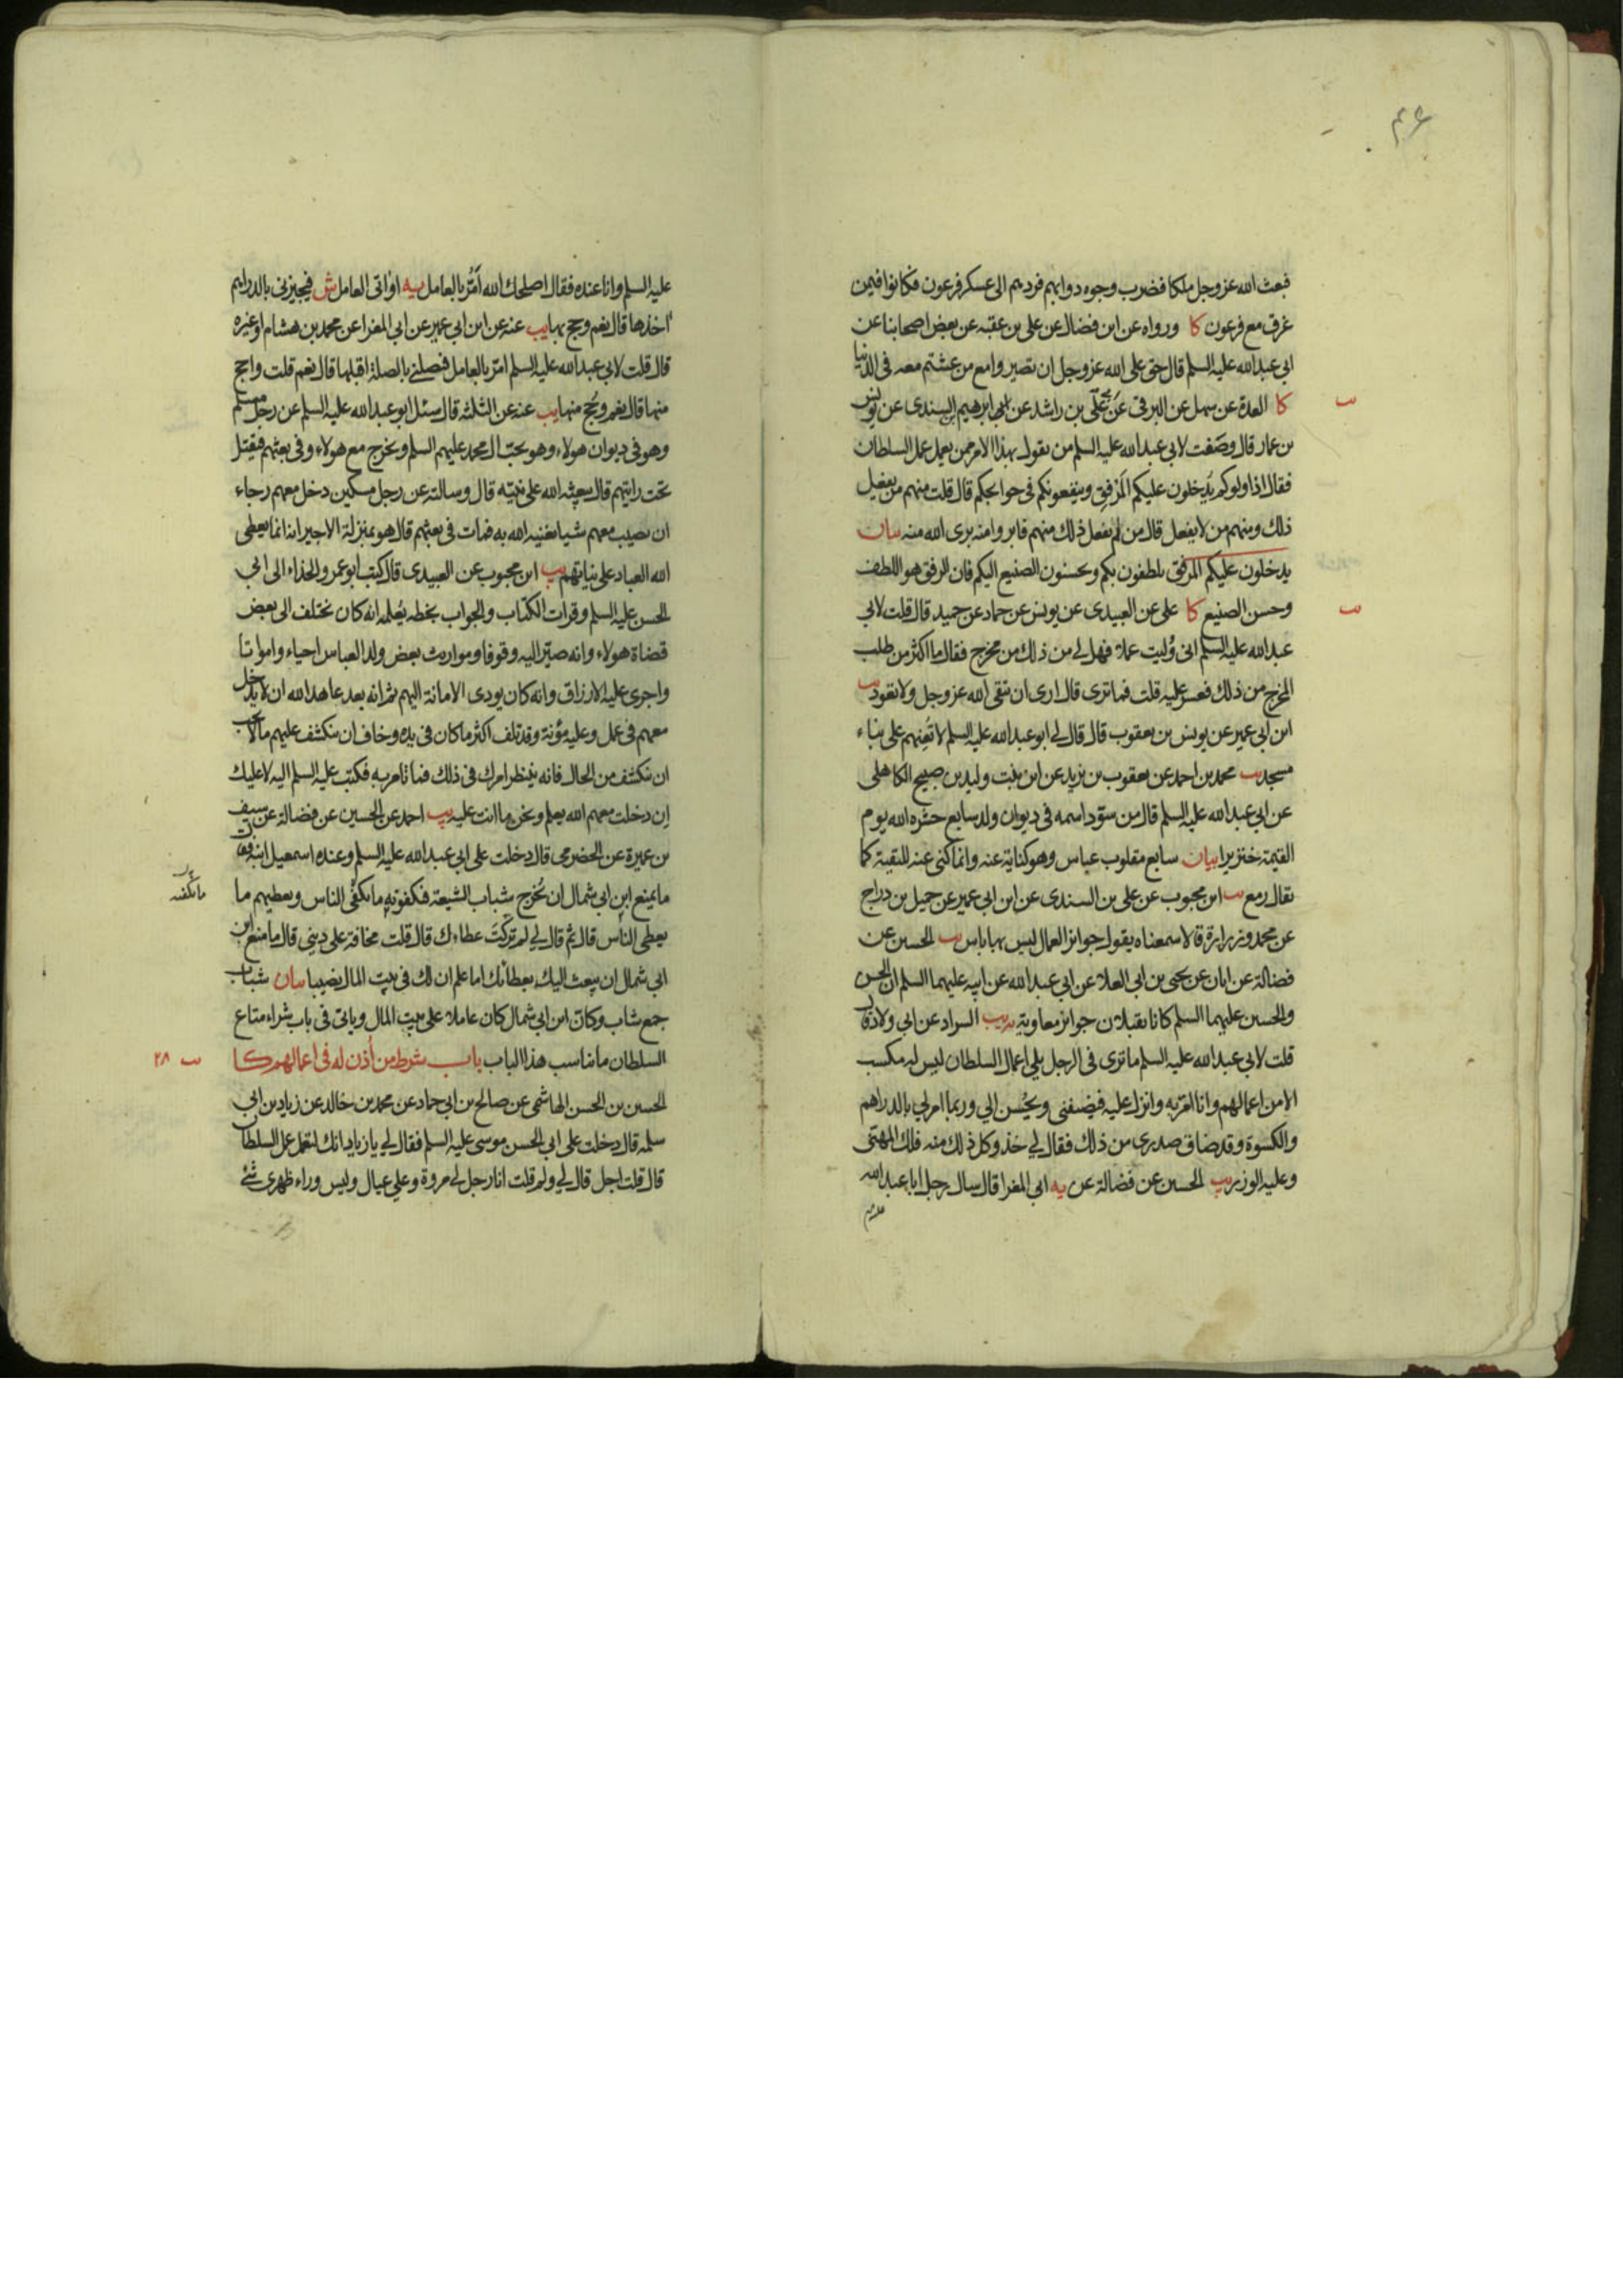 ۴۶
فبعث الله عز وجل ملكا فضرب وجوه دوابهم فردهم الى عسكر فرعون فكانوا فيمن
غرق مع فرعون كا ورواه عن ابن فضال عن علي بن عقبه عن بعض اصحابنا عن
ابي عبد الله عليه السلم قال حق على الله عز وجل ان تصيروا مع من عشتم معه في الدنيا
كا العدة عن سهل عن البرقي عن علي بن راشد عن ابراهيم السندي عن يونس
بن عمار قال وصفت لابي عبد الله عليه السلم من يقول بهذا الامر ممن يعمل عمل السلطان
فقال اذا ولوكم يدخلون عليكم المرفق وينفعونكم في حوايجكم قال قلت منهم من يفعل
ذلك ومنهم من لا يفعل قال من لم يفعل ذلك منهم فابروا منه برى الله منه بيان
يدخلون عليكم المرفق يلطفون بكم ويحسنون الصنيع اليكم فان الرفق هو اللطف
وحسن الصنيع كا علي عن العبيدي عن يونس عن حماد عن حميد قال قلت لابي
عبد الله عليه السلم اني وُليت عملا فهل لي من ذلك من مخرج فقال ما اكثر من طلب
المخرج من ذلك فعسر عليه قلت فما ترى قال ارى ان تتقي الله عز وجل ولا تعود يب
ابن ابي عمير عن يونس بن يعقوب قال قال لي ابو عبد الله عليه السلم لا تُعِنهم على بناء
مسجد يب محمد بن احمد عن يعقوب بن يزيد عن ابن بنت وليد بن صبيح الكاهلي
عن ابي عبد الله عليه السلم قال من سوّد اسمه في ديوان ولد سابع حشره الله يوم
القيمة خنزيرا بيان سابع مقلوب عباس وهو كناية عنه وانما كنى عنه للتقية كما
يقال رمع يب ابن محبوب عن علي بن السندي عن ابن ابي عمير عن جميل بن دراج
عن محمد وزرارة قالا سمعناه يقول جوايز العمال ليس بها باس يب الحسين عن
فضالة عن ابان عن يحيى بن ابي العلا عن ابي عبد الله عن ابيه عليهما السلم ان الحسن
والحسين عليهما السلم كانا يقبلان جوايز معاوية يه يب السراد عن ابي ولاد قال
قلت لابي عبد الله عليه السلم ما ترى في الرجل يلي اعمال السلطان ليس له مكسب
الا من اعمالهم وانا امر به وانزل عليه فيضيفني ويحسن الي وربما امر لي بالدراهم
والكسوة وقد ضاق صدري من ذلك فقال لي خذ وكل ذلك منه فلك المهنى
وعليه الوزر يب الحسين عن فضالة عن يه ابي المغرا قال سال رجل ابا عبد الله
عليه السلم وانا عنده فقال اصلحك الله اَمُرُّ بالعامل يه او اتى العامل ش فيجيزني بالدراهم
اخذها قال نعم وحج بها يب عنه عن ابن ابي عمير عن ابي المغرا عن محمد بن هشام او غيره
قال قلت لابي عبد الله عليه السلم امرّ بالعامل فيصلني بالصلة اقبلها قال نعم قلت واحج
منها قال نعم وحُج منها يب عنه عن الثلثة قال سئل ابو عبد الله عليه السلم عن رجل مسلم
وهو في ديوان هولاء وهو يحب ال محمد عليهم السلم ويخرج مع هولاء وفي بعثهم فيقتل
تحت رايتهم قال يبعثه الله على نيته قال وسالته عن رجل مسكين دخل معهم رجاء
ان يصيب معهم شيا يغنيه الله به فمات في بعثهم قال هو بمنزلة الاجير انه انما يعطي
الله العباد على نياتهم يب ابن محبوب عن العبيدي قال كتب ابو عمرو الحذاء الى ابي
الحسن عليه السلم وقرات الكتاب والجواب بخطه يُعلمه انه كان يختلف الى بعض
قضاة هولاء وانه صيّر اليه وقوفا ومواريث بعض ولد العباس احياء وامواتا
واجرى عليه الارزاق وانه كان يودي الامانة اليهم ثم انه بعد عاهد الله ان لا يدخل
معهم في عمل وعليه مؤنة وقد تلف اكثر ما كان في يده وخاف ان ينكشف عليهم مالا يجب
ان ينكشف من الحال فانه ينتظر امرك في ذلك فما تامر به فكتب عليه السلم اليه لا عليك
إن دخلت معهم الله يعلم ونحن ما انت عليه يب احمد عن الحسين عن فضالة عن سيف
بن عميرة عن الحضرمي قال دخلت على ابي عبد الله عليه السلم وعنده اسمعيل ابنه فقال
ما يمنع ابن ابي شمال ان يُخرج شباب الشيعة فيكفونه ما يكفي الناس ويعطيهم ما
يعطي الناس قال ثم قال لي لم تركتَ عطاءك قال قلت مخافة على ديني قال ما منع ابن
ابي شمال ان يبعث اليك بعطائك اما علم ان لك في بيت المال نصيبا بيان شباب
جمع شاب وكان ابن ابي شمال كان عاملا على بيت المال وياتي في باب شراء متاع
السلطان ما يناسب هذا الباب باب شرط من أُذن له في اعمالهم كا
الحسين بن الحسن الهاشمي عن صالح بن ابي حماد عن محمد بن خالد عن زياد بن ابي
سلمه قال دخلت على ابي الحسن موسى عليه السلم فقال لي يا زياد انك لتعمل عمل السلطان
قال قلت اجل قال لي ولم قلت انا رجل لي مروة وعلي عيال وليس وراء ظهري شئ
۲۸